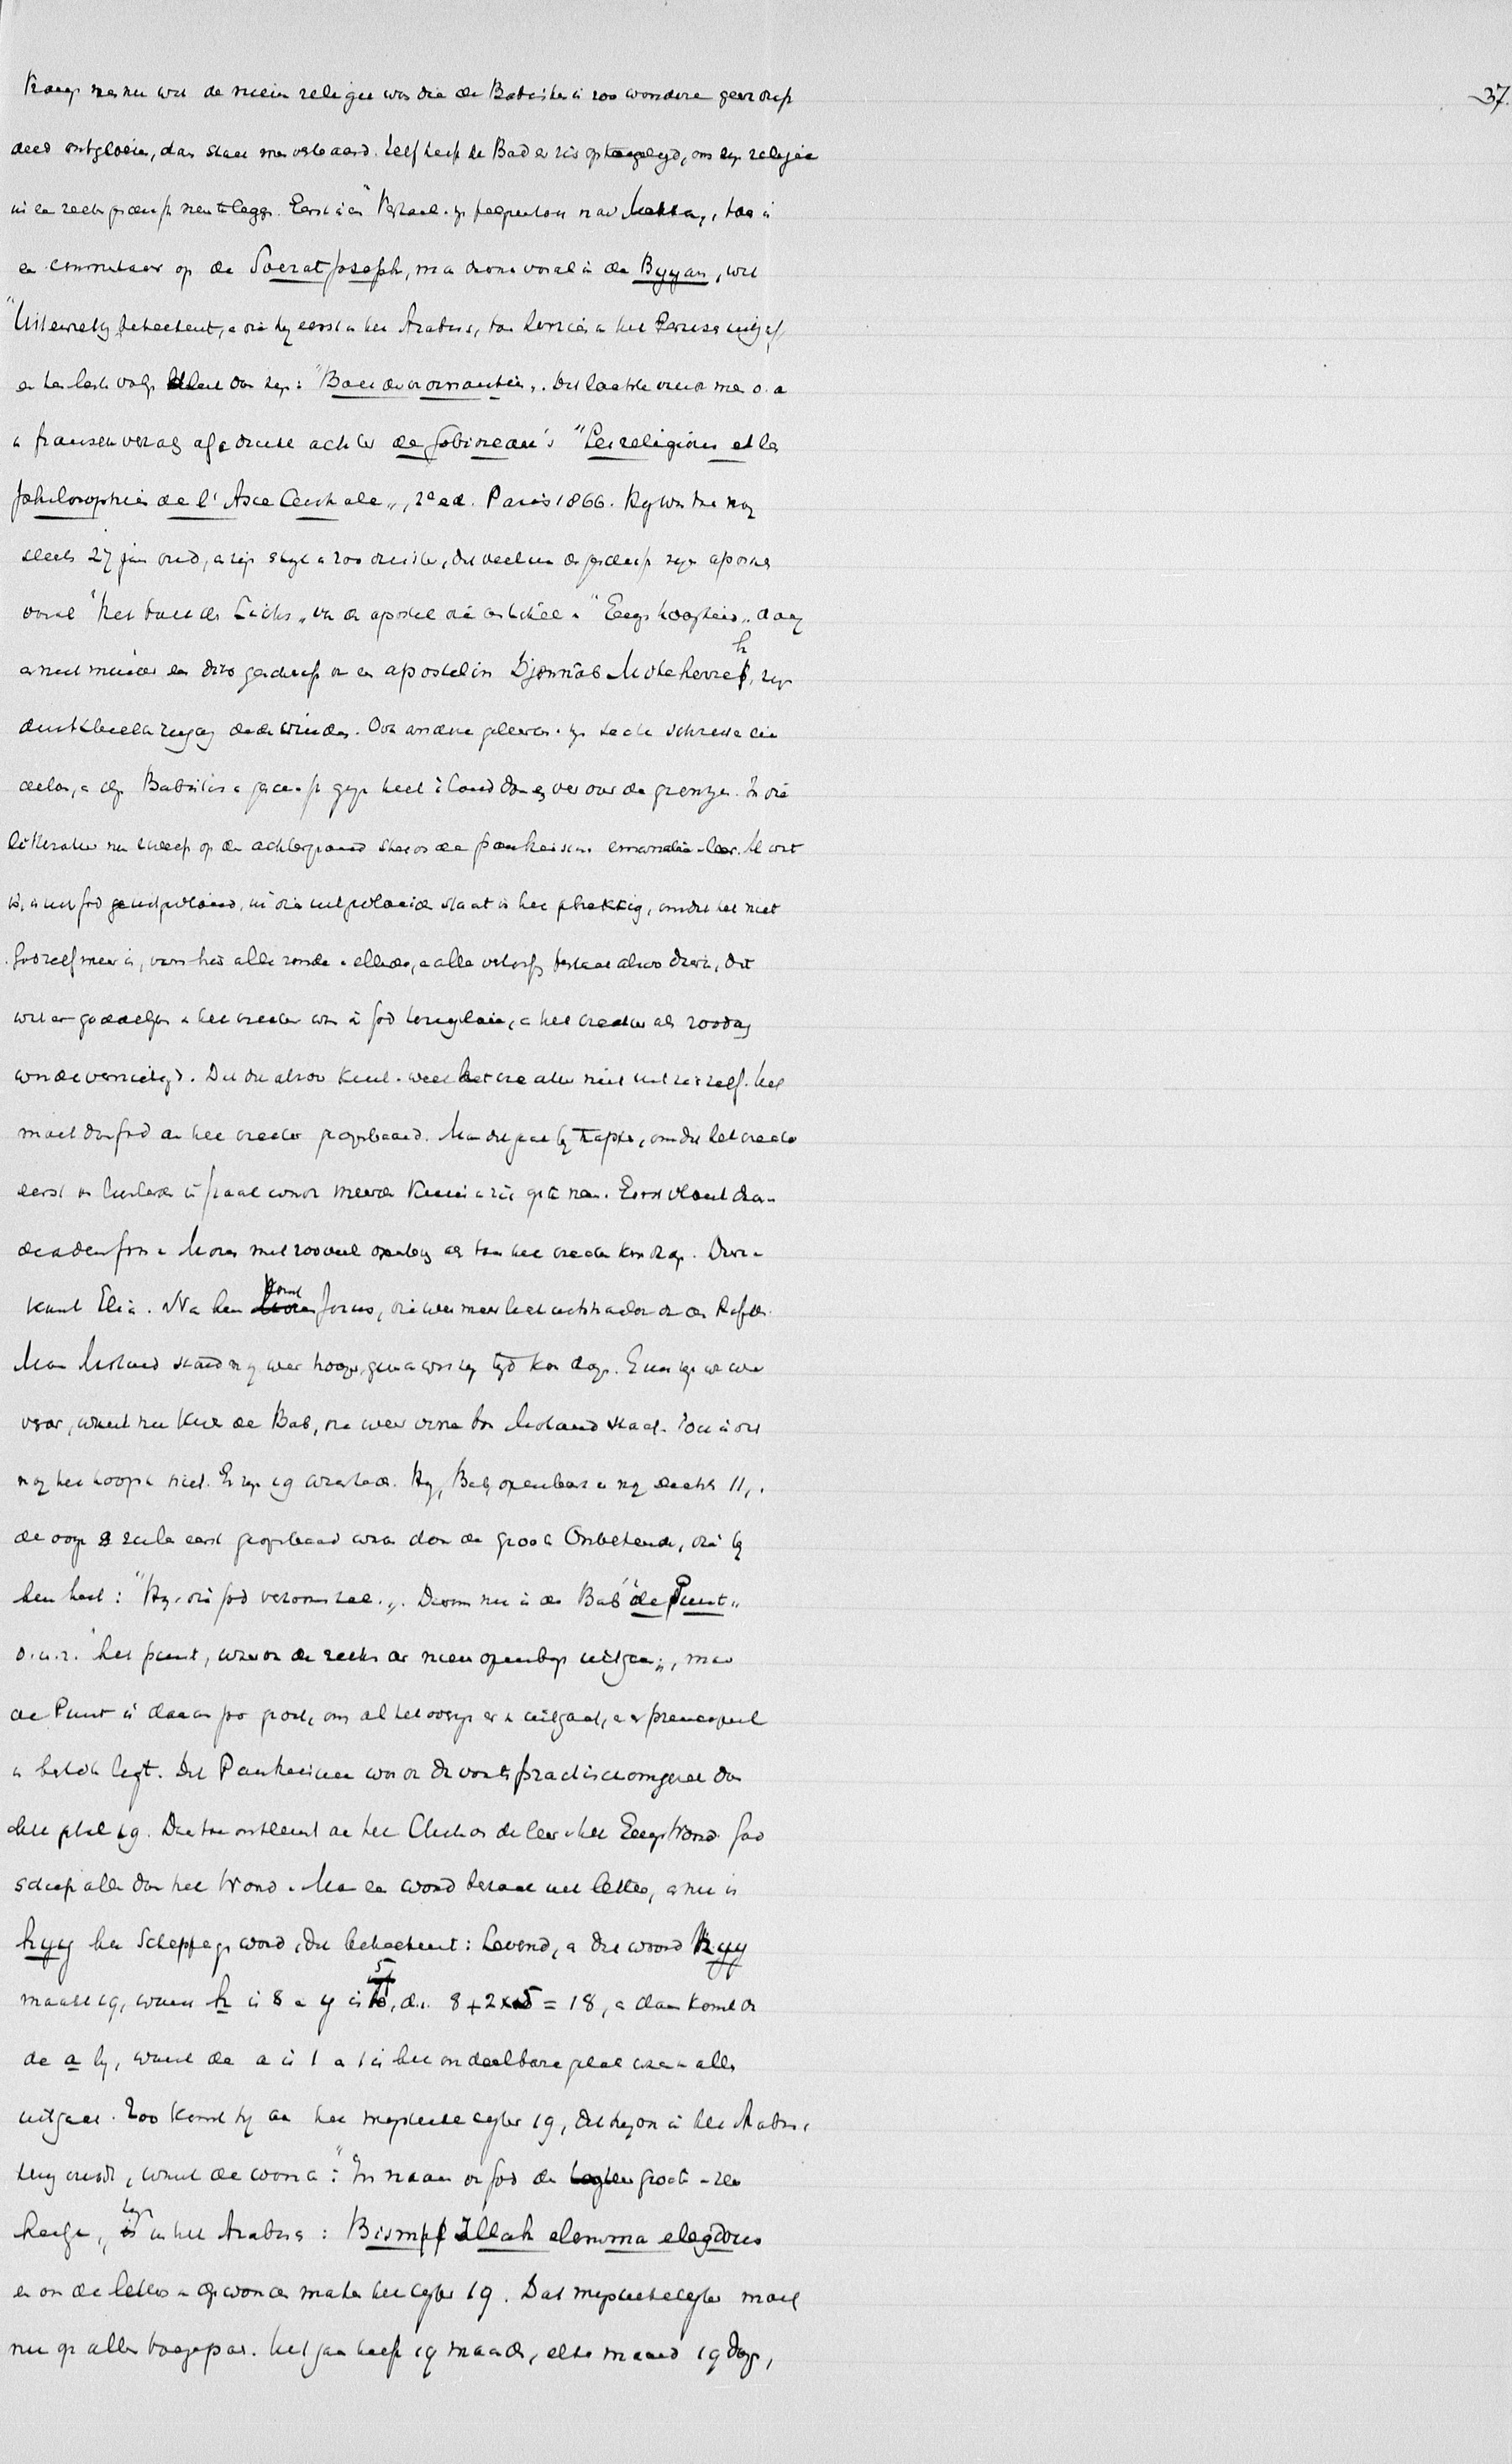 37.
nu wat de nieuwe religie was die de Babisten in zoo wondere geestdrift
deed ontgloeien, dan staat men verbaasd. Zelf heeft de Bab er zich op toegelegd, om zijn religie
in een reeks geschriften neer te leggen. Eerst in een "Verhaal zijn pelgrimstocht naar Mekka", toen in
een commentaar op de Soerat Joseph, maar daarna vooral in de Byyan, wat
"Uiteenzetting beteekent, en die hij eerst in het Arabisch, toen in het Perzisch uitgaf
en ten laatste volgde van zijn: "Boek der ordonnantiën". Dit laatste vindt men o.a.
in fransche vertaling afgedrukt achter de Gobineau's "Les religions et les
philosophies de l'Asie Centrale", 2e ed. Paris 1866. Hij was toen nog
slechts 27 jaar oud, en zijn stijl is zoo duister, dat veelmeer de geschriften zijner apostelen
vooral "het boek des Lichts" van de apostel die den titel "Eeuwige hoogheid" draagt
en niet minder de drie geschriften van de apostelin Djennab Motaherreh, zijn
denkbeelden ingang deden vinden. Ook andere geleerden zijner secte schreven
deelen, en deze Babistische geschriften gingen heel het land door en ver over de grenzen. In die
litteratuur nu zweeft op den achtergrond steeds de pantheistische emanatie-leer. Al wat
is, is uit God gevloeid, in die uitgevloeide staat is het gebrekkig, omdat het niet
God zelf meer is, vandaar alle zonde en ellende, en alle verlossing bestaat alzoo daarin, dat
wat er goddelijks in het creatuur was in God terugvloeie, en het creatuur als zoodanig
worde vernietigd. Dit doel alzoo kent en weet het creatuur niet uit zichzelf. Het
moet door God aan het creatuur geopenbaard. Maar dit gaat bij trappen, omdat het creatuur
eerst van lieverlede in staat wordt meerdere kennis in zich op te nemen. Eerst vloeit daarom
de adem Gods in Mozes met zooveel openbaring als toen het creatuur kon dragen. Daarna
komt Elia. Na hen komt Jezus, die weer meer licht uitstraalde dan de Profeten.
Maar Mohamed stond nog weer hooger, omdat zijn tijd kon dragen. Eeuwen gingen weer
voor, want nu komt de Bab, die weer verre boven Mohamed staat. Toch is ook dit
nog het hoogste niet. Er zijn 19 waarheden. Hij, Bab, openbaarde er nog slechts 11,
de overige 8 zullen eerst geopenbaard worden door den grooten Onbekende, die bij
hen heet: "Hij, dien God verordenen zal". Daarom nu is de Bab "de Punt"
d.w.z. "het punt, waarvan de reeks der nieuwe openbaringen uitgaan", maar
de Punt is daarom zoo groot, om al het overige er in uitgaat, en er principieel
in besloten ligt. Dit Pantheisme wordt dan voorts practisch omgezet door
het getal 19. Daartoe ontleent hij aan het Christendom de leer van het Eeuwige Woord. God
schiep alles door het Woord. Maar een woord bestaat uit letters, en nu is
hyy het Scheppings woord, dat beteekent: Levend, en dit woord hyy
maakt 19, want h is 8 en y is 5, d.i. 8 + 2 x 5 = 18, en dan komt er
de a bij, want de a is 1 en 1 is het ondeelbare getal waaruit alles
uitgaat. Zoo komt hij aan het mystieke cijfer 19, dat hij ook in het Arabisch
terug vindt, want de woorden: "In naam van God den grooten en zeer
heilige", zijn in het Arabisch: Bismi Illah elemma elegdous
en ook de letters in deze woorden maken het cijfer 19. Dat mystieke cijfer moet
nu op alles toegepast. Het jaar heeft 19 maanden, elke maand 19 dagen,